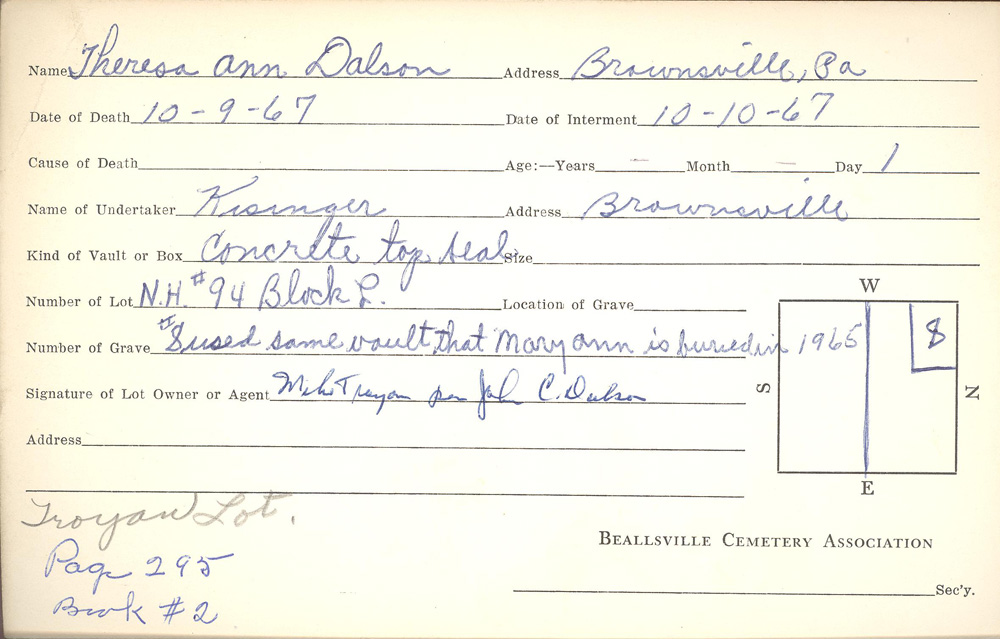 Name Theresa Ann Dalson Address Brownsville, Pa
Date of Death 10-9-67 Date of Interment 10-10-67
Cause of Death Age:—Years — Month — Day 1
Name of Undertaker Kisinger Address Brownsville
Kind of Vault or Box Concrete top seal Size
Number of Lot N.H. #94 Block L. Location of Grave
Number of Grave #8 used same vault that Mary Ann is buried in 1965
Signature of Lot Owner or Agent Mike Troyan per John C. Dalson
Address
W
S
8
N
E
Troyan Lot.
Page 295
Book #2
Beallsville Cemetery Association
Sec'y.